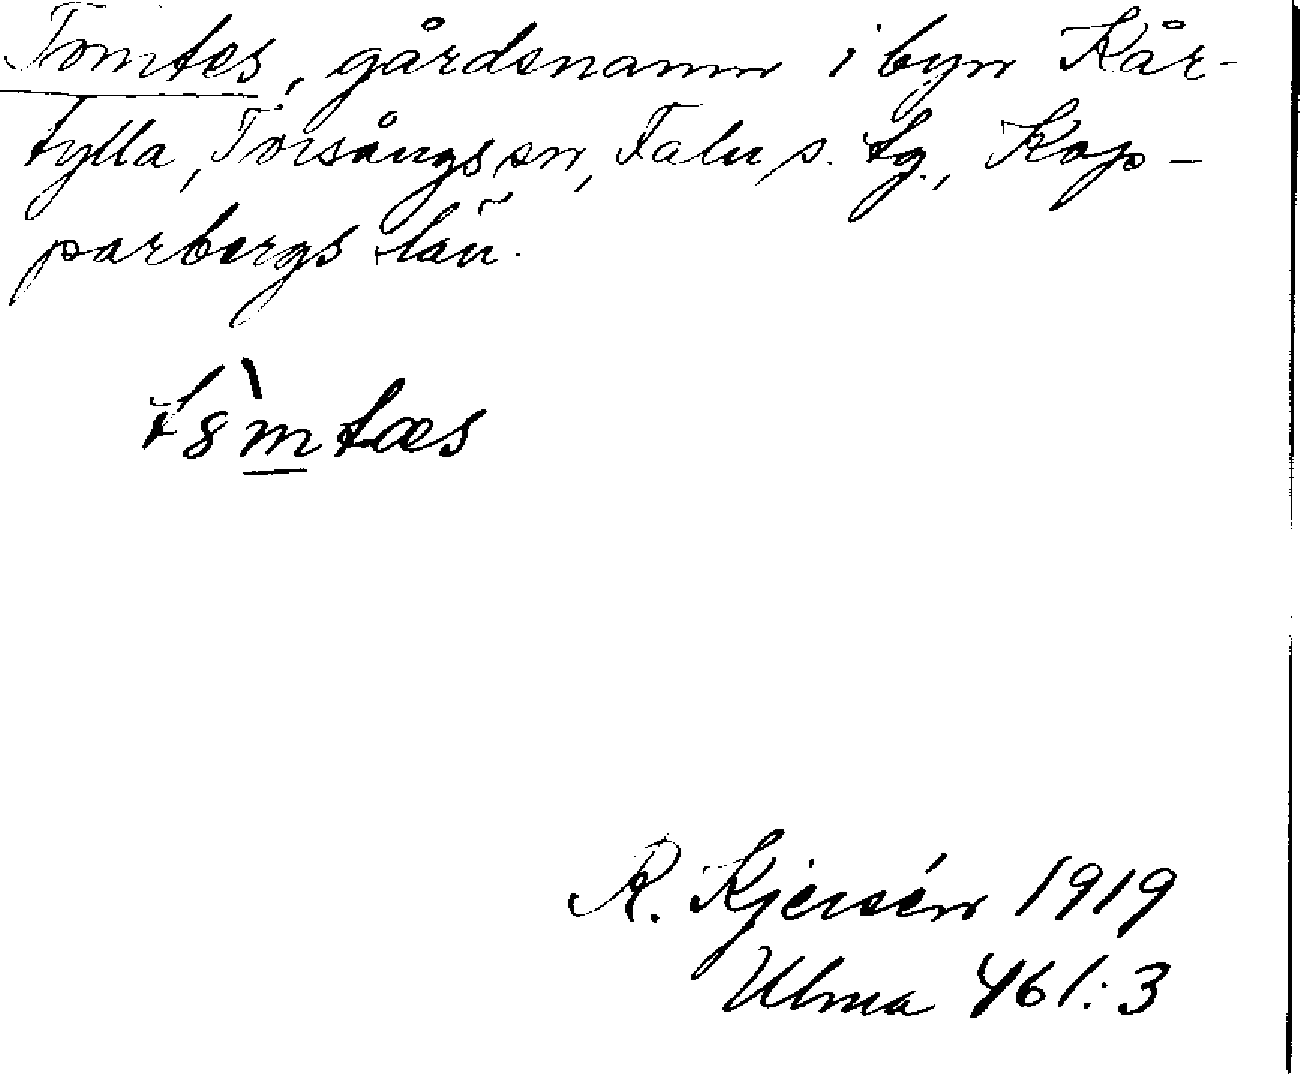 Tomtes, gårdsnamn i byn Kår-
tylla, Torsångs sn, Falu s. tg., Kop-
parbergs län.
t8̀mtæs
R. Kjersén 1919
Ulma 461:3